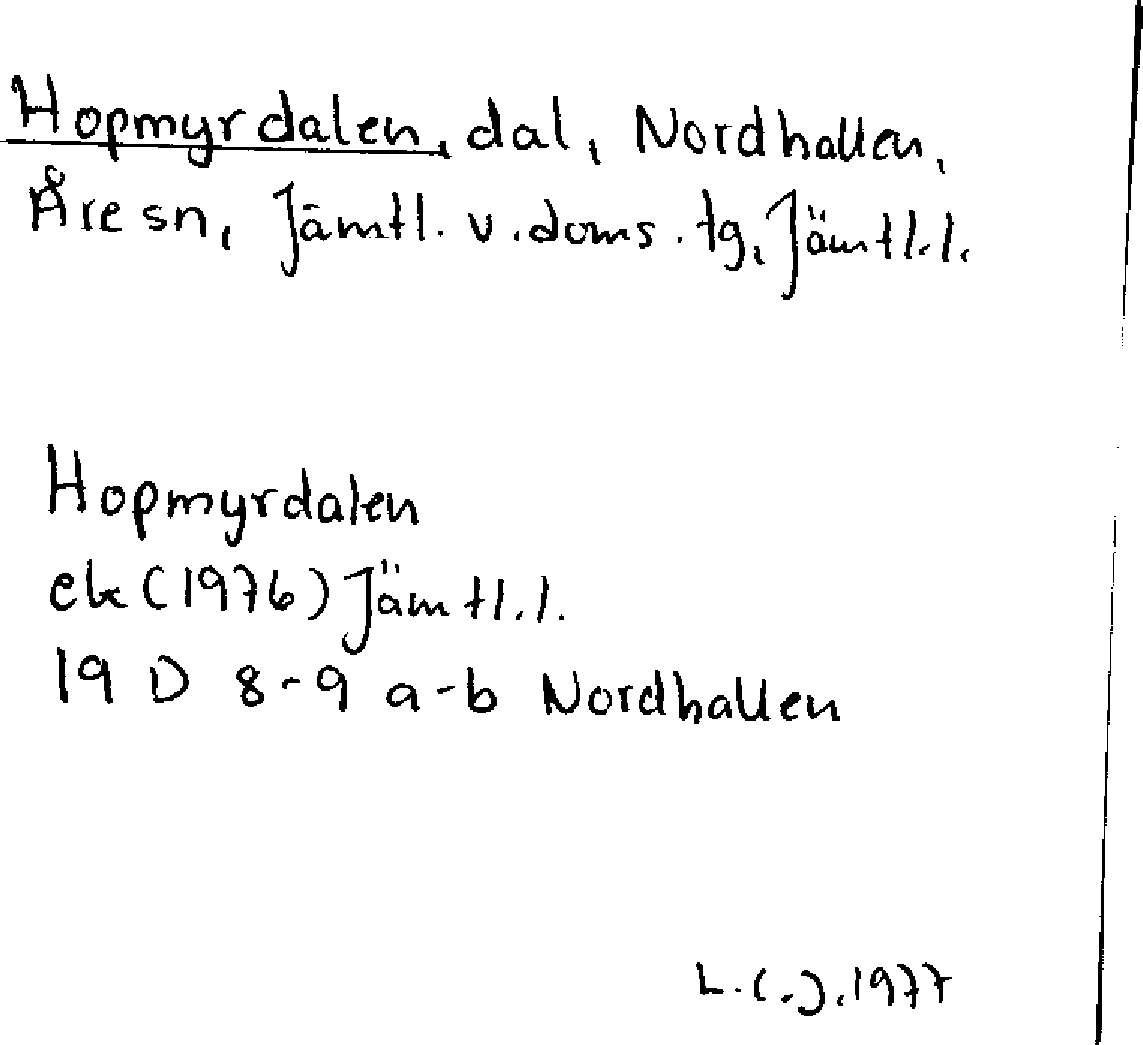 Hopmyrdalen, dal, Nordhallen,
Åre sn, Jämtl. v. doms. tg, Jämtl. l.
Hopmyrdalen
ek (1976) Jämtl. l.
19 D 8-9 a-b Nordhallen
L.C.J. 1977